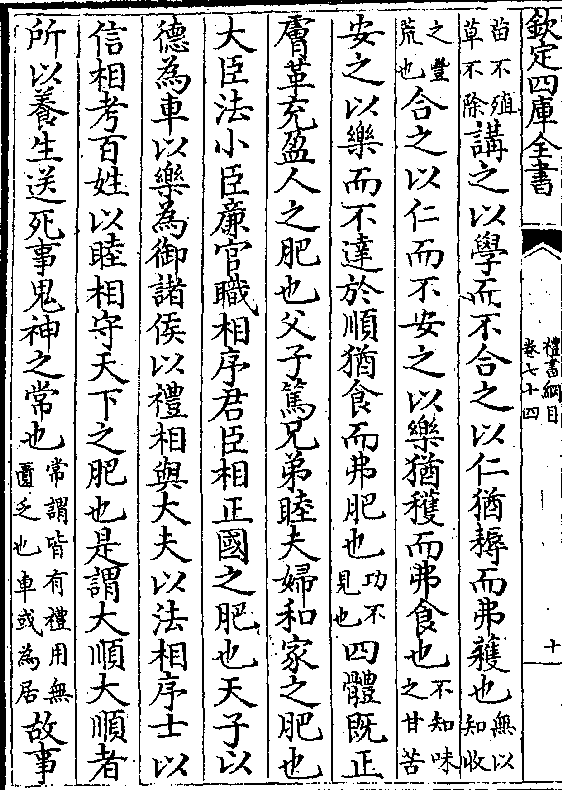 欽定四庫全書
禮書綱目
卷七十四
十
苗不殖
草不除
講之以學而不合之以仁猶耨而弗穫也
無以
知收
之豐
荒也
合之以仁而不安之以樂猶穫而弗食也
不知味
之甘苦
安之以樂而不達於順猶食而弗肥也
功不
見也
四體既正
膚革充盈人之肥也父子篤兄弟睦夫婦和家之肥也
大臣法小臣廉官職相序君臣相正國之肥也天子以
德為車以樂為御諸侯以禮相與大夫以法相序士以
信相考百姓以睦相守天下之肥也是謂大順大順者
所以養生送死事鬼神之常也
常謂皆有禮用無
匱乏也車或為居
故事